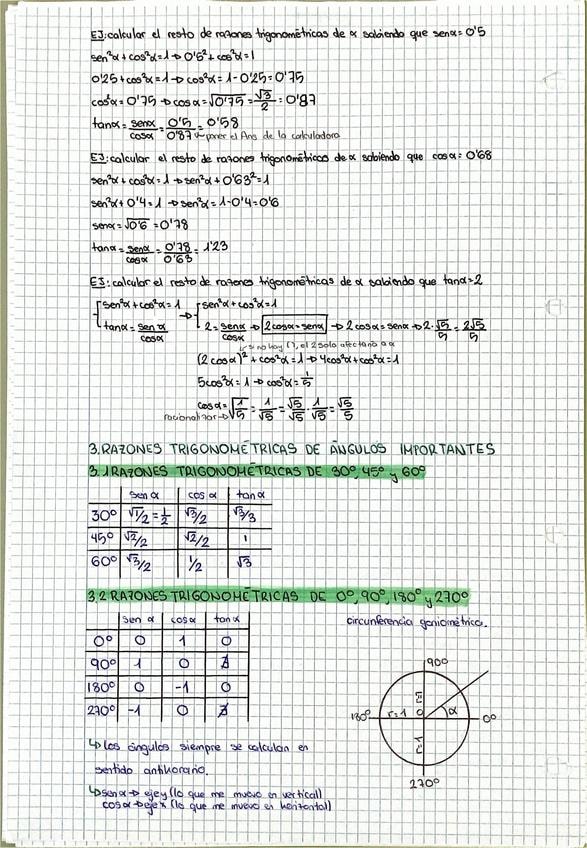 EJ: calcular el resto de razones trigonométricas de α sabiendo que senα = 0'5
sen²α + cos²α = 1 → 0'5² + cos²α = 1
0'25 + cos²α = 1 → cos²α = 1 - 0'25 = 0'75
cos²α = 0'75 → cosα = √0'75 = √3/2 = 0'87
tanα = senα/cosα = 0'5/0'87 = 0'58
poner el Ans de la calculadora
EJ: calcular el resto de razones trigonométricas de α sabiendo que cosα = 0'68
sen²α + cos²α = 1 → sen²α + 0'63² = 1
sen²α + 0'4 = 1 → sen²α = 1 - 0'4 = 0'6
senα = √0'6 = 0'78
tanα = senα/cosα = 0'78/0'63 = 1'23
EJ: calcular el resto de razones trigonométricas de α sabiendo que tanα = 2
sen²α + cos²α = 1 → sen²α + cos²α = 1
tanα = senα/cosα 2 = senα/cosα → 2cosα = senα → 2cosα = senα → 2·√5/5 = 2√5/5
si no hay (), el 2 solo afectaría a α
(2cosα)² + cos²α = 1 → 4cos²α + cos²α = 1
5cos²α = 1 → cos²α = 1/5
cosα = √1/5 = 1/√5 = √5/√5 · 1/√5 = √5/5
racionalizar →
3. RAZONES TRIGONOMÉTRICAS DE ÁNGULOS IMPORTANTES
3.1 RAZONES TRIGONOMÉTRICAS DE 30º, 45º y 60º
sen α cos α tan α
30º √1/2 = 1/2 √3/2 √3/3
45º √2/2 √2/2 1
60º √3/2 1/2 √3
3.2 RAZONES TRIGONOMÉTRICAS DE 0º, 90º, 180º y 270º
sen α cosα tanα
0º 0 1 0
90º 1 0 ∄
180º 0 -1 0
270º -1 0 ∄
↳ Los ángulos siempre se calculan en
sentido antihorario.
↳ senα → eje y (lo que me muevo en vertical)
cosα → eje x (lo que me muevo en horizontal)
circunferencia goniométrica.
90º
180º r=1 0 α 0º
270º